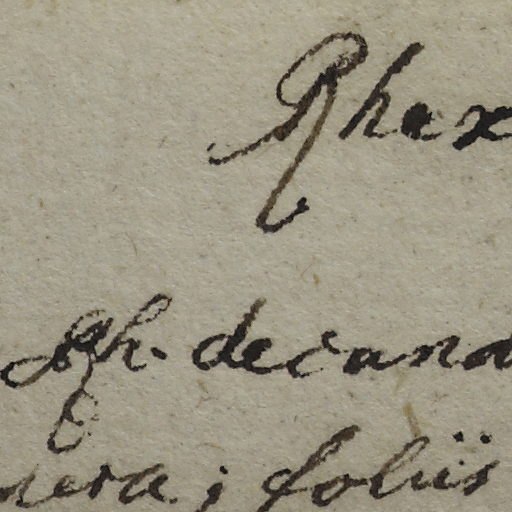 Rhex
Rh. decand
nera; foliis